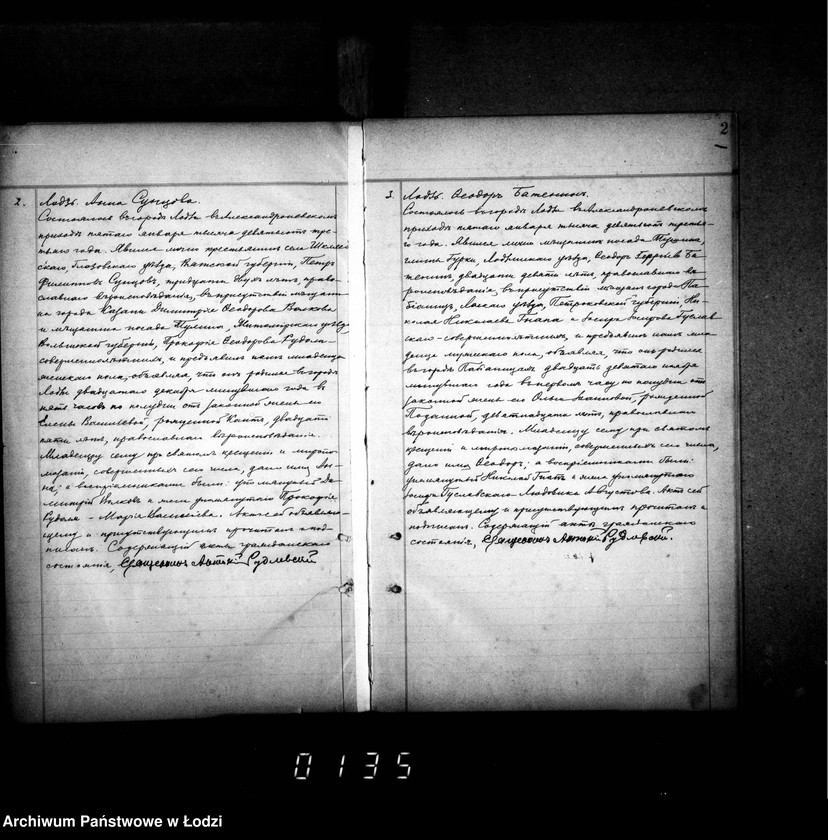 2
2. Лодзь. Анна Сунцова.
Состоялось въ городѣ Лодзи въ Александроневскомъ
приходѣ пятаго января тысяча девятьсотъ тре-
тьяго года. Явился лично крестьянинъ села
скаго, Глазовскаго уѣзда, Вятской губерніи, Петръ
Филипповъ Сунцовъ, тридцати двухъ лѣтъ, право-
славнаго вѣроисповѣданія, въ присутствіи мѣщани-
на города Казани Димитрія Ѳеодорова Волкова
и мѣщанина посада уѣзда
Волынской губерніи, Прокофія Ѳеодорова
совершеннолѣтнихъ, и предъявилъ намъ младенца
женскаго пола, объявляя, что онъ родился въ городѣ
Лодзи двадцатаго декабря минувшаго года въ
пять часовъ по полудни отъ законной жены его
Елены Васильевой, рожденной двадцати
пяти лѣтъ, православнаго вѣроисповѣданія.
Младенцу сему при святомъ крещеніи и мѵропо-
мазаніи, совершенныхъ сего числа, дано имя Ан-
на; а воспріемниками были: Ди-
митрій Волковъ и жена упомянутаго Прокофія
Марія Васильева. Актъ сей объявляю-
щему и присутствующимъ прочитанъ и под-
писанъ. Содержащій акты гражданскаго
состоянія, Священникъ Антоній Рудлевскій
3. Лодзь. Ѳеодоръ Батенинъ.
Состоялось въ городѣ Лодзи въ Александроневскомъ
приходѣ пятаго января тысяча девятьсотъ третья-
го года. Явился лично мѣщанинъ посада
гмины Лодзинскаго уѣзда, Ѳеодоръ Ба-
тенинъ, двадцати девяти лѣтъ, православнаго вѣ-
роисповѣданія, въ присутствіи мѣщанъ города Па-
біаницъ, Ласкаго уѣзда, Петроковской губерніи, Ни-
колая Николаева и Гуслав-
скаго совершеннолѣтнихъ, и предъявилъ намъ мла-
денца мужескаго пола, объявляя, что онъ родился
въ городѣ Пабіаницахъ двадцать девятаго
минувшаго года въ первомъ часу по полудни отъ
законной жены его Ольги рожденной
девятнадцати лѣтъ, православнаго
вѣроисповѣданія. Младенцу сему при святомъ
крещеніи и мѵропомазаніи, совершенныхъ сего числа,
дано имя Ѳеодоръ; а воспріемниками были:
упомянутый Николай и жена упомянутаго
Гуславскаго Людовика Августова. Актъ сей
объявляющему и присутствующимъ прочитанъ и
подписанъ. Содержащій акты гражданскаго
состоянія, Священникъ Антоній Рудлевскій.
0135
Archiwum Państwowe w Łodzi